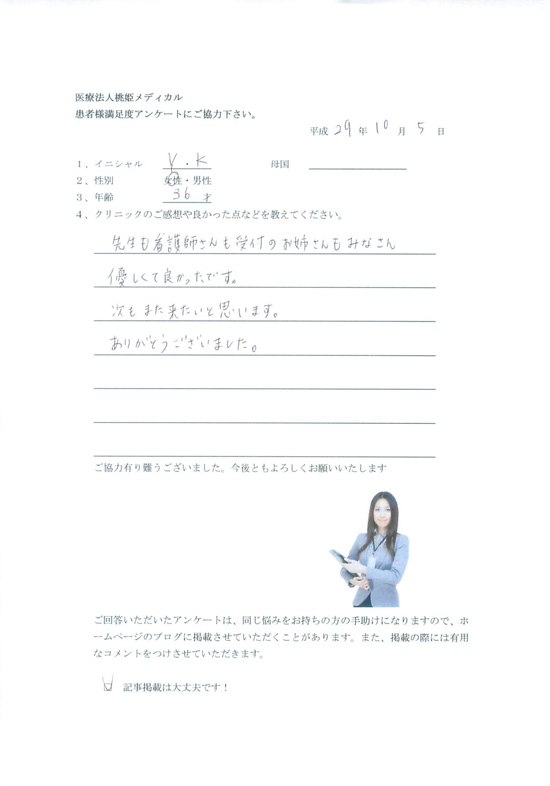 医療法人桃姫メディカル
患者様満足度アンケートにご協力下さい。
平成 29 年 10 月 5 日
1、イニシャル Y・K 母国
2、性別 女性・男性
3、年齢 36 才
4、クリニックのご感想や良かった点などを教えてください。
先生も看護師さんも受付のお姉さんもみなさん
優しくて良かったです。
次もまた来たいと思います。
ありがとうございました。
ご協力有り難うございました。今後ともよろしくお願いいたします
ご回答いただいたアンケートは、同じ悩みをお持ちの方の手助けになりますので、ホ
ームページのブログに掲載させていただくことがあります。また、掲載の際には有用
なコメントをつけさせていただきます。
記事掲載は大丈夫です！